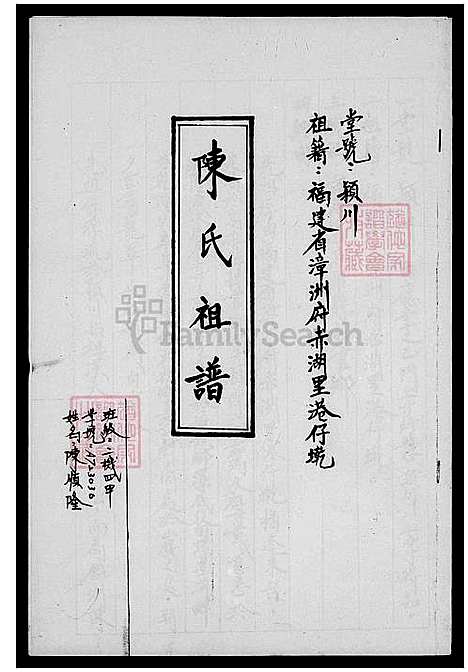 堂號：穎川
祖籍：福建省漳洲府赤湖里港仔墘
陳氏祖譜
班級：二機四甲
學號：A723036
姓名：陳順隆
FamilySearch